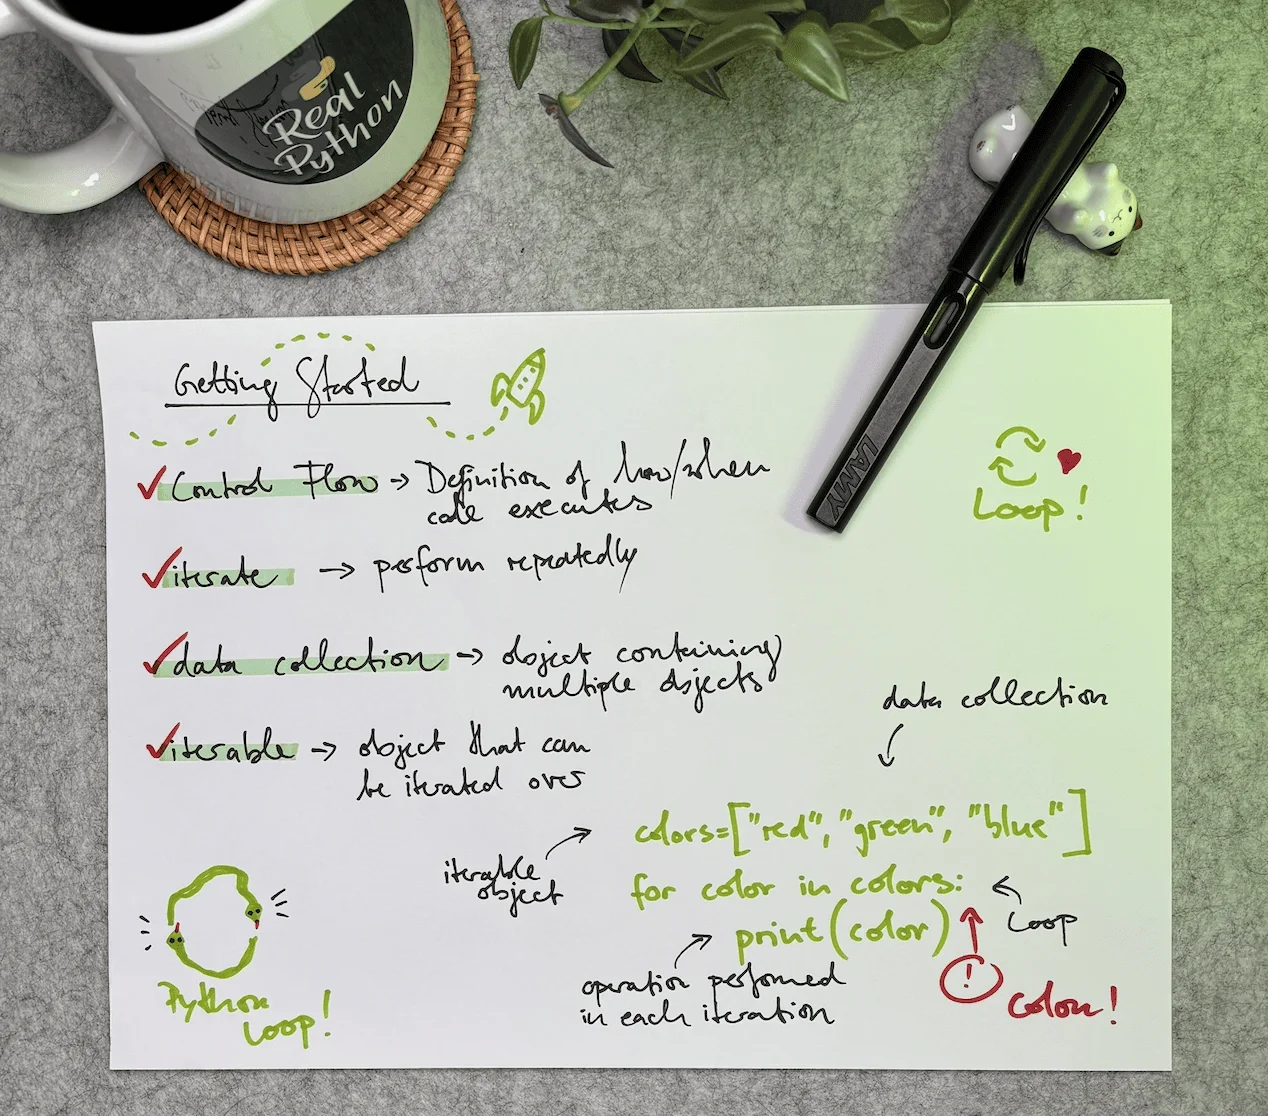 Real
Python
LAMY
Getting Started
Control Flow → Definition of how/when
code executes
Loop!
iterate → perform repeatedly
data collection → object containing
multiple objects
iterable → object that can
be iterated over
data collection
colors=["red", "green", "blue"]
iterable
object
for color in colors:
Loop
print(color)
operation performed
in each iteration
!
colon!
Python
Loop!